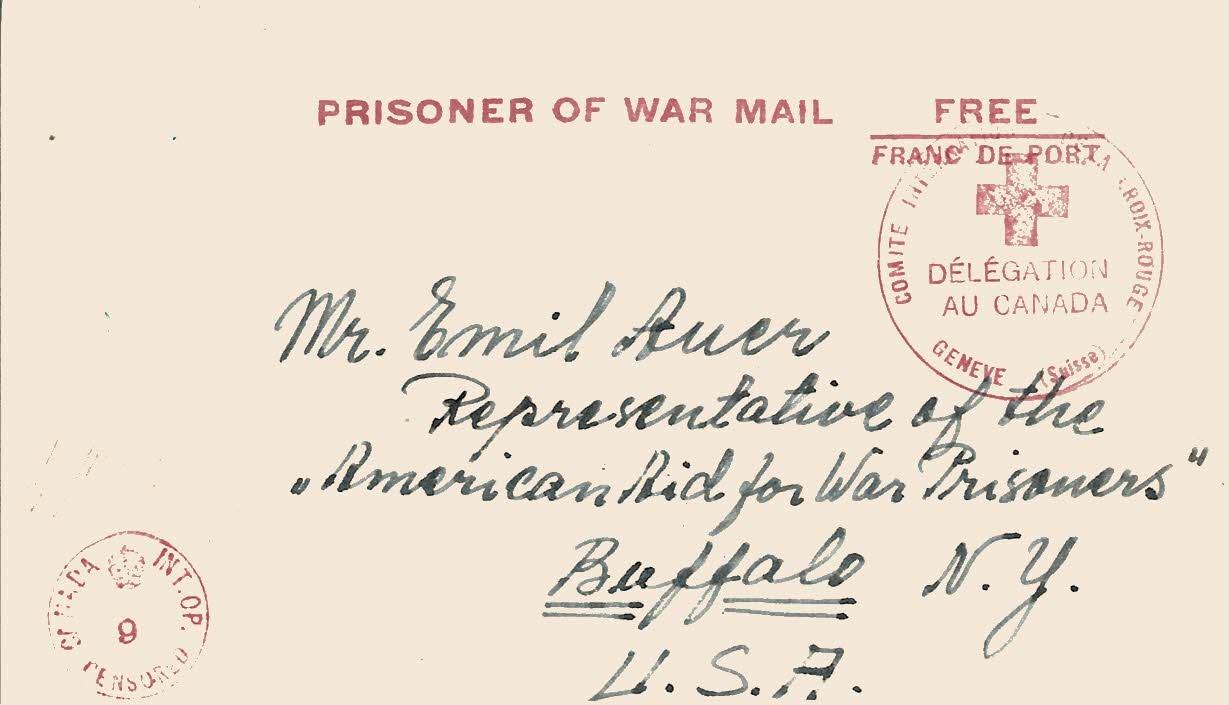 PRISONER OF WAR MAIL FREE
FRANC DE PORT
COMITE CROIX-ROUGE
DÉLÉGATION
AU CANADA
GENEVE (Suisse)
Mr. Emil Auer
Representative of the
„American Aid for War Prisoners"
Buffalo N.Y.
U.S.A.
CANADA INT.OP.
9
CENSORED